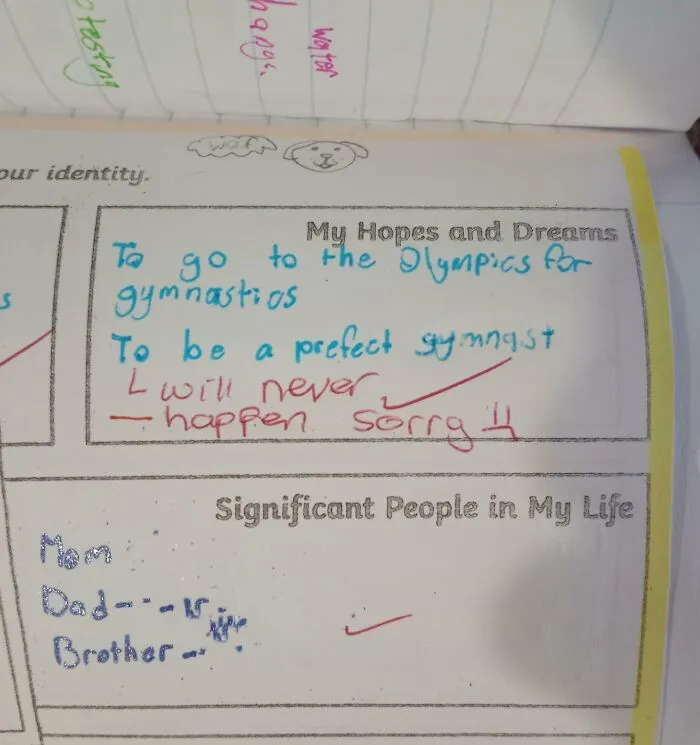 otesting
hange
water
our identity.
woof
My Hopes and Dreams
To go to the Olympics for
gymnastics
To be a prefect gymnast
will never
happen sorry
s
Significant People in My Life
Mom
Dad
Brother